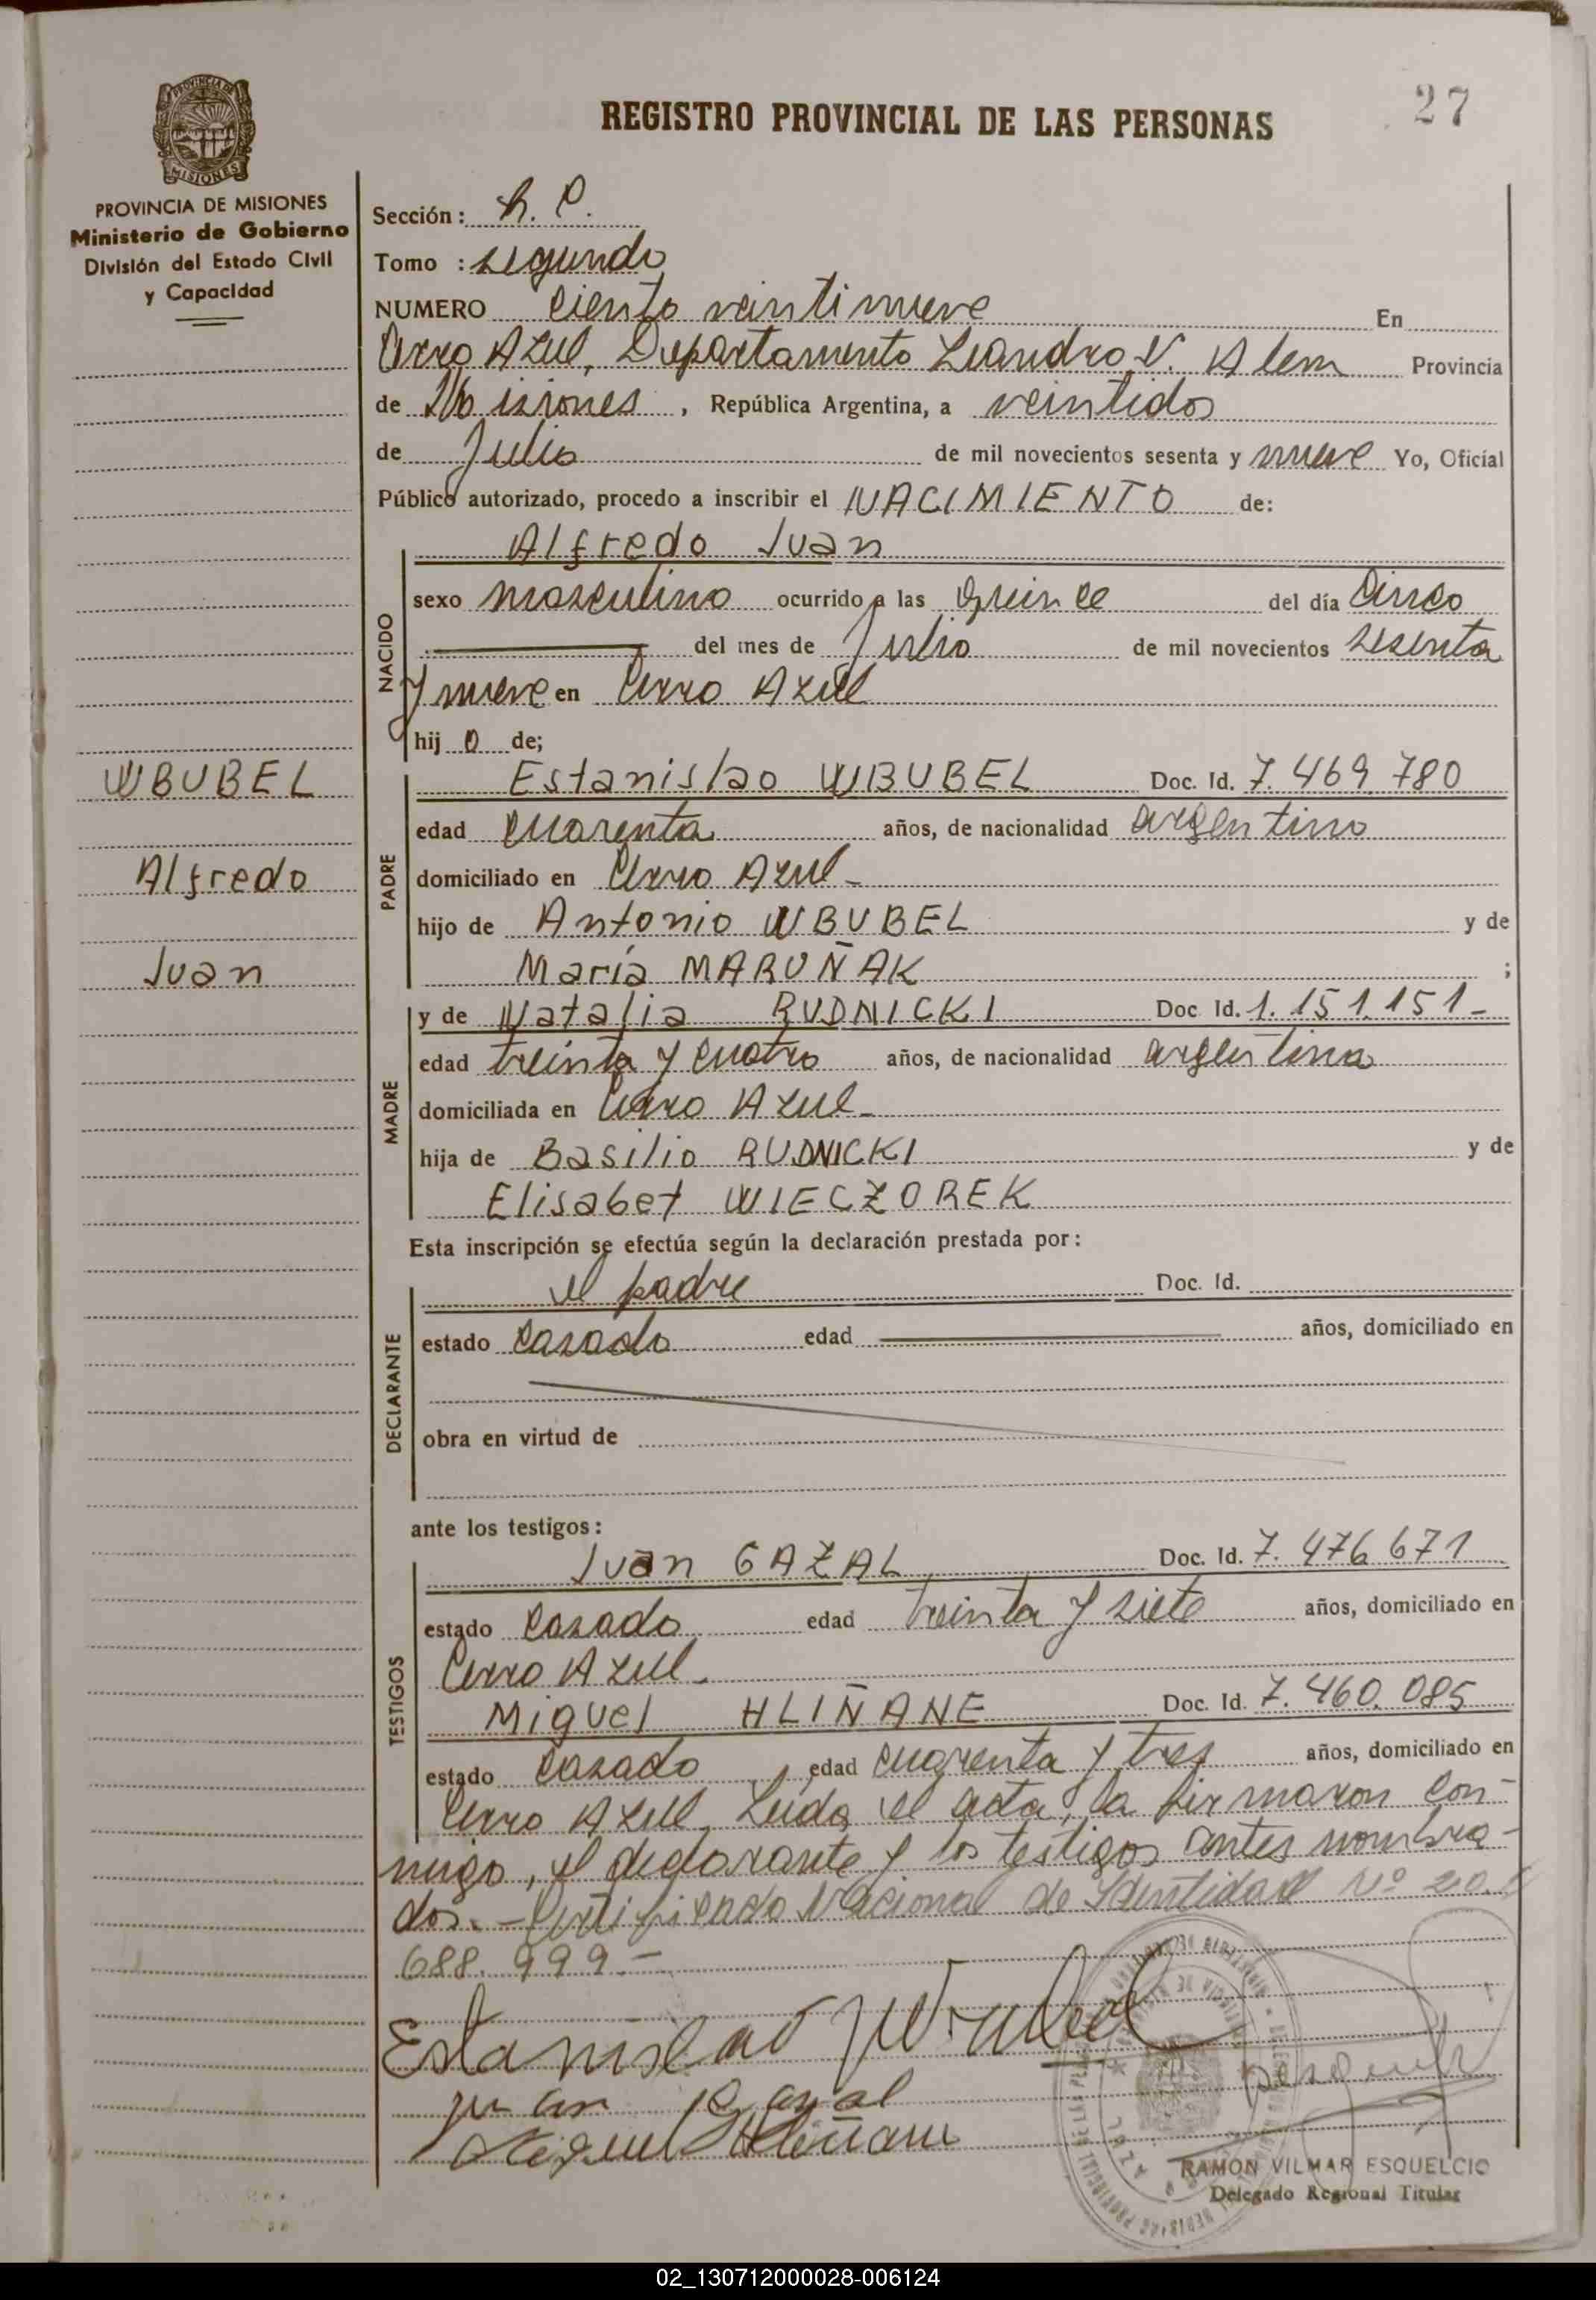 27
REGISTRO PROVINCIAL DE LAS PERSONAS
MISIONES
PROVINCIA DE MISIONES
Ministerio de Gobierno
División del Estado Civil
y Capacidad
Sección:
Tomo : segundo
NUMERO ciento veintinueve En
Cerro Azul, Departamento Leandro N. Alem Provincia
de Misiones, República Argentina, a veintidos
de Julio de mil novecientos sesenta y nueve Yo, Oficial
Público autorizado, procedo a inscribir el NACIMIENTO de:
NACIDO
Alfredo Juan
sexo masculino ocurrido a las quince del día cinco
del mes de Julio de mil novecientos sesenta
y nueve en Cerro Azul
hij o de;
WBUBEL
Alfredo
Juan
PADRE
Estanislao WBUBEL Doc. Id. 7.469.780
edad cuarenta años, de nacionalidad argentino
domiciliado en Cerro Azul-
hijo de Antonio WBUBEL y de
María MARUÑAK ;
MADRE
y de Natalia RUDNICKI Doc Id. 1.151.151-
edad treinta y cuatro años, de nacionalidad argentina
domiciliada en Cerro Azul-
hija de Basilio RUDNICKI y de
Elisabet WIECZOREK
Esta inscripción se efectúa según la declaración prestada por:
DECLARANTE
el padre Doc. Id.
estado casado edad años, domiciliado en
obra en virtud de
ante los testigos:
TESTIGOS
Juan GAZAL Doc. Id. 7.476.671
estado casado edad treinta y siete años, domiciliado en
Cerro Azul-
Miguel HLIÑANE Doc. Id. 7.460.085
estado casado, edad cuarenta y tres años, domiciliado en
Cerro Azul. Leída el acta, la firmaron con-
migo, el declarante y los testigos antes nombra-
dos.- Certificado Nacional de Identidad Nº 20.
688.999.-
Estanislao Wbubel
Juan Gazal
Miguel Hliñane
RAMON VILMAR ESQUELCIO
Delegado Regional Titular
02_130712000028-006124